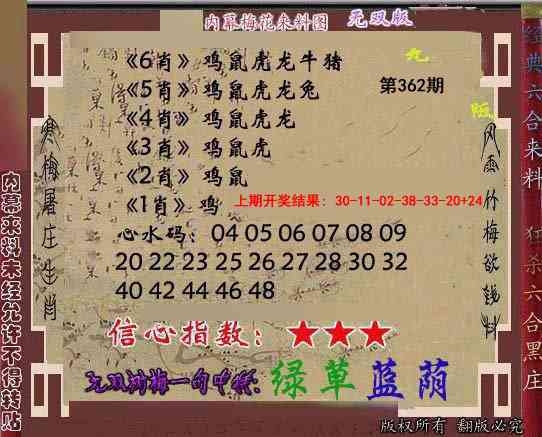 内幕梅花来料图 无双版
《6肖》鸡鼠虎龙牛猪
《5肖》鸡鼠虎龙兔
第362期
《4肖》鸡鼠虎龙
《3肖》鸡鼠虎
《2肖》鸡鼠
《1肖》鸡
上期开奖结果：30-11-02-38-33-20+24
心水码：04 05 06 07 08 09
20 22 23 25 26 27 28 30 32
40 42 44 46 48
信心指数：★★★
无双 梅一句中特：绿草蓝荫
寒梅屠庄生肖
内幕来料未经允许不得转贴
九
版
风雪竹梅欲钱料
经典六合来料 狂杀六合黑庄
版权所有 翻版必究